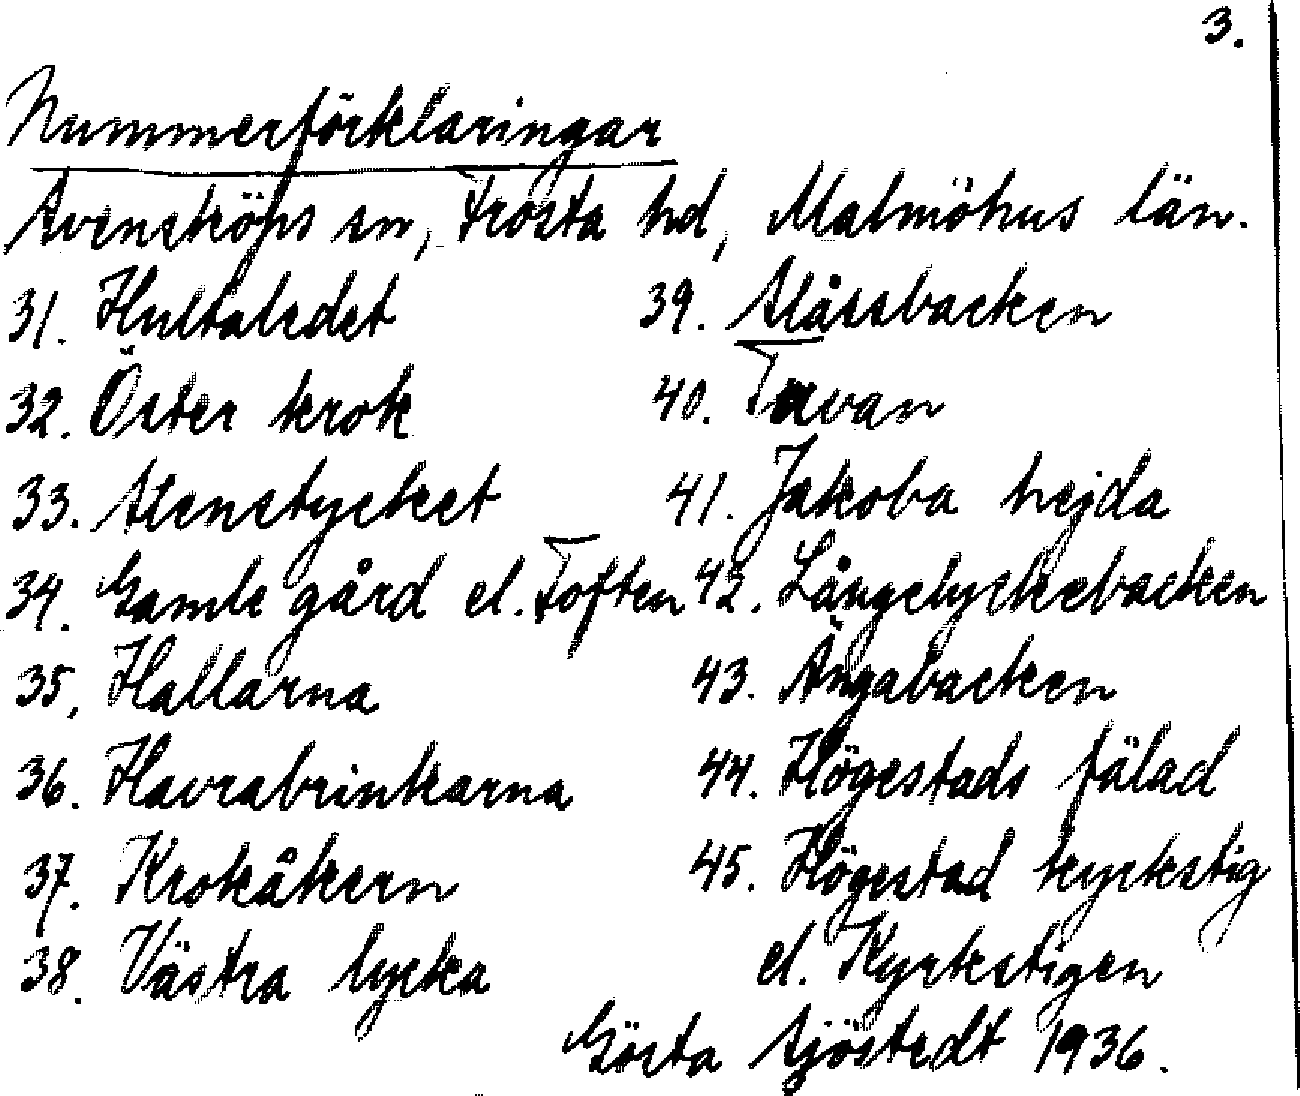 3.
Nummerförklaringar
Svensköps sn, Frosta hd, Malmöhus län.
31. Hultaledet
32. Öster krok
33. Stenstycket
34. Gamle gård el. Toften
35. Hallarna
36. Havrabrinkarna
37. Krokåkern
38. Västra lycka
39. Slåssbacken
40.
41. Jakoba hejda
42. Långelyckebacken
43. Ängabacken
44. Högestads fälad
45. Högestad kyrkstig
el. Kyrkstigen
Gösta Sjöstedt 1936.